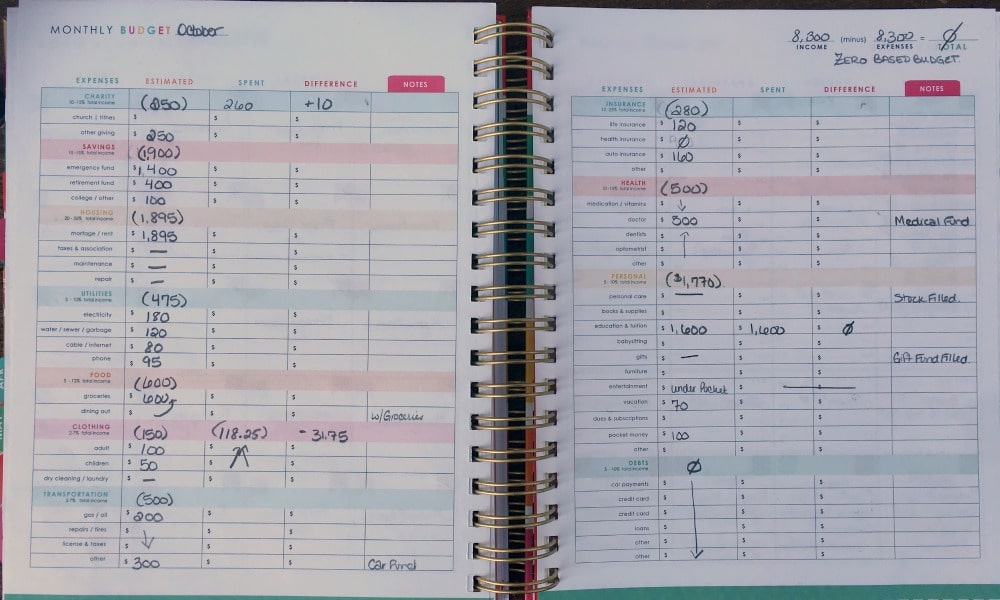 MONTHLY BUDGET October
EXPENSES ESTIMATED SPENT DIFFERENCE NOTES
CHARITY (250) 260 +10
10-15% total income
church / tithes $ $ $
other giving 250 $ $
SAVINGS (1,900)
10-15% total income
emergency fund $1,400 $ $
retirement fund $ 400 $ $
college / other $ 100 $ $
HOUSING (1,895)
total income
mortage / rent $ 1,895 $ $
taxes & association $ — $ $
maintenance $ — $ $
repair $ — $ $
UTILITIES (475)
5 - 10% total income
electricity $ 180 $ $
water / sewer / garbage $ 120 $ $
cable / internet $ 80 $ $
phone $ 95 $ $
FOOD (600)
5 - 15% total income
groceries $ 600 $ $
dining out $ $ $ w/Groceries
CLOTHING (150) (118.25) - 31.75
2-7% total income
adult $ 100 $ $
children $ 50 $ $
dry cleaning / laundry $ — $ $
TRANSPORTATION (500)
total income
gas / oil $ 200 $ $
repairs / tires $ ↓ $ $
license & taxes $ $ $
other $ 300 $ $ Car Fund
8,300 (minus) 8,300 = Ø
INCOME EXPENSES TOTAL
ZERO BASED BUDGET
EXPENSES ESTIMATED SPENT DIFFERENCE NOTES
INSURANCE (280)
total income
life insurance $ 120 $ $
health insurance $ Ø $ $
auto insurance $ 160 $ $
other $ $ $
HEALTH (500)
total income
medication / vitamins $ ↓ $ $
doctor $ 500 $ $ Medical Fund
dentists $ ↑ $ $
optometrist $ $ $
other $ $ $
PERSONAL ($1,770)
5 - 10% total income
personal care $ — $ $ Stock Filled
books & supplies $ $ $
education & tuition $ 1,600 $ 1,600 $ Ø
babysitting $ $ $
gifts $ — $ $ Gift Fund Filled
furniture $ $ $
entertainment $ under Pocket $ —
vacation $ 70 $ $
dues & subscriptions $ $ $
pocket money $ 100 $ $
other $ $ $
DEBTS Ø
5 - 10% total income
car payments $ $ $
credit card $ $ $
credit card $ $ $
loans $ $ $
other $ $ $
other $ $ $